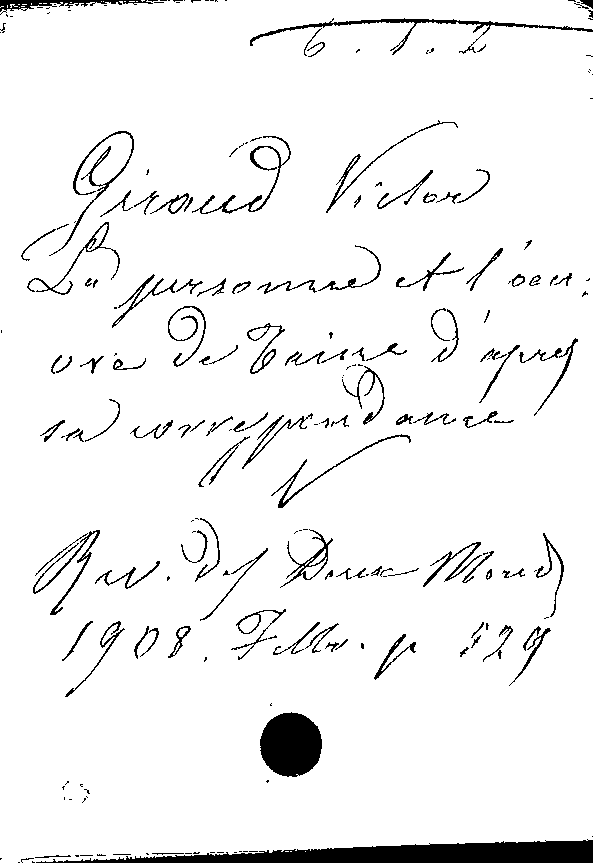 6.1.2
Giraud Victor
La personne et l'oeu-
vre de Taine d'après
sa correspondance
Rev. des Deux Mond
1908. Febbr. p 529